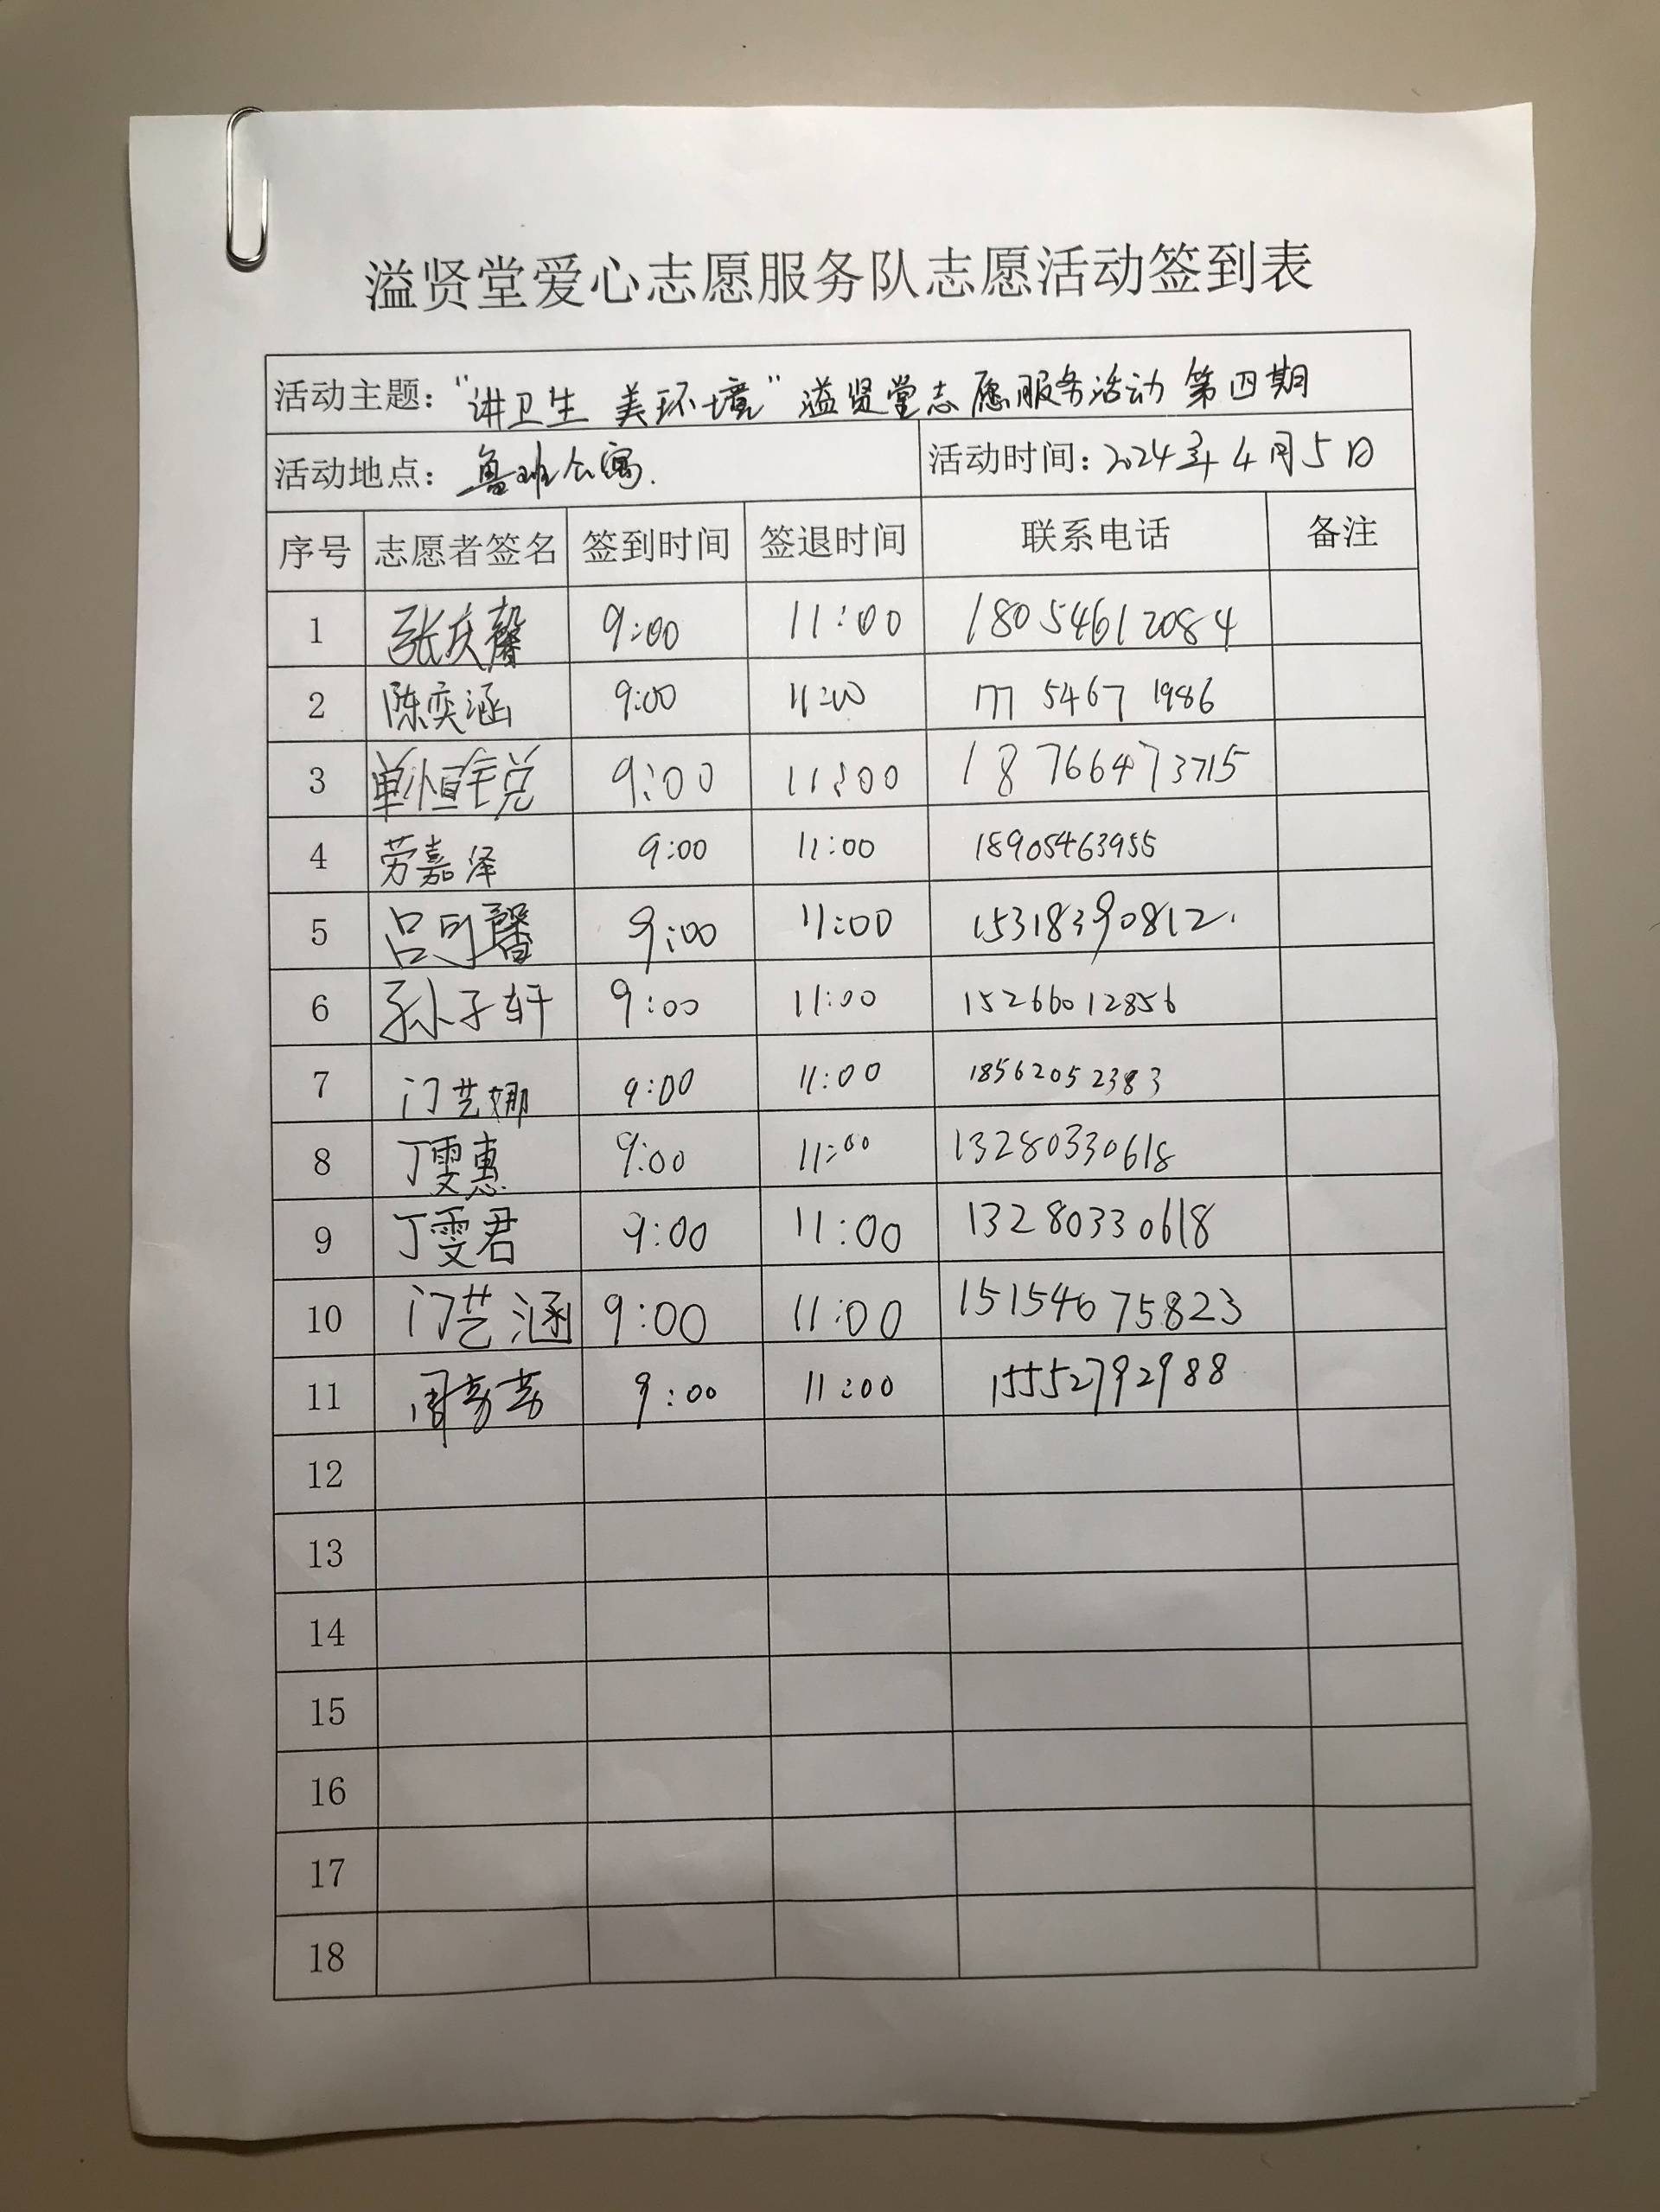 溢贤堂爱心志愿服务队志愿活动签到表
活动主题：“讲卫生 美环境”溢贤堂志愿服务活动 第四期
活动地点：鲁班公寓. 活动时间：2024年4月5日
序号 志愿者签名 签到时间 签退时间 联系电话 备注
1 张庆馨 9:00 11:00 18054612084
2 陈奕涵 9:00 11:00 177 5467 1986
3 单恒 9:00 11:00 18766473715
4 劳嘉泽 9:00 11:00 15905463955
5 吕可馨 9:00 11:00 15318390812.
6 孙子轩 9:00 11:00 15266012856
7 门艺娜 9:00 11:00 18562052383
8 丁雯惠 9:00 11:00 13280330618
9 丁雯君 9:00 11:00 13280330618
10 门艺涵 9:00 11:00 15154675823
11 周 9:00 11:00 15552792988
12
13
14
15
16
17
18